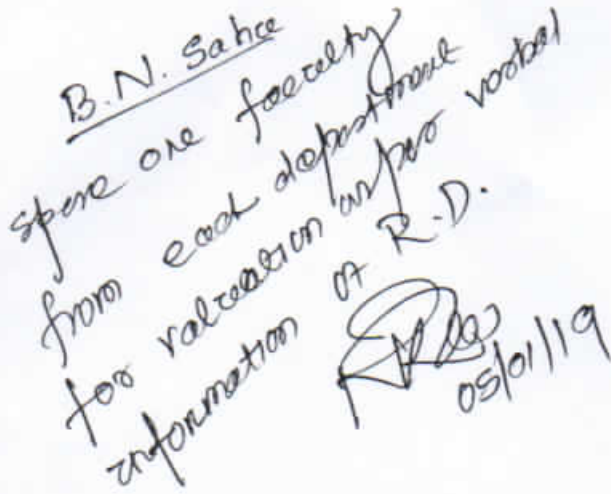 B.N. Sahoo
spare one faculty
from each department
for valuation as per verbal
information of R.D.
05/01/19